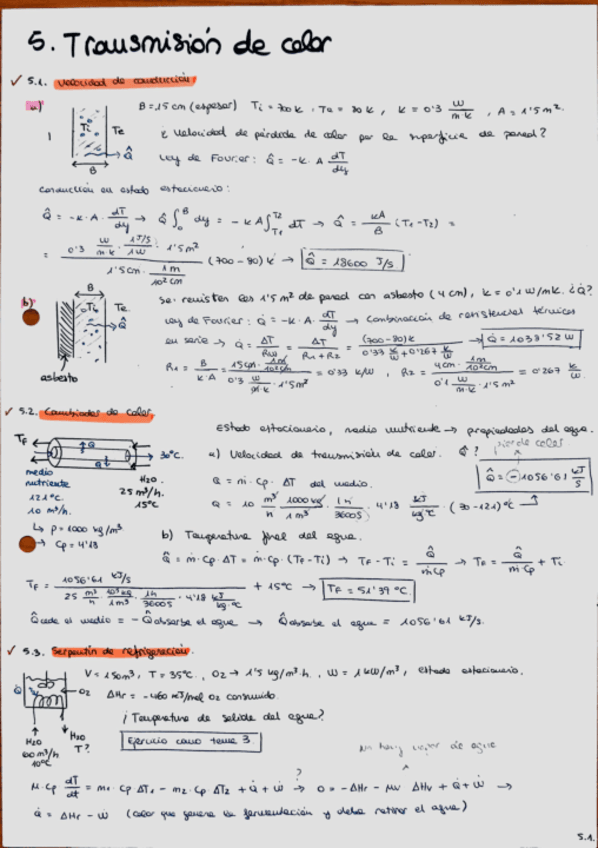 5. Transmisión de calor
✓ 5.1. Velocidad de conducción
a) B = 15 cm (espesor) Ti = 700 K, Te = 80 K, K = 0'3 W/m·K, A = 1'5 m².
Ti Te
¿ Velocidad de pérdida de calor por la superficie de pared?
Q̂
B
Ley de Fourier: Q̂ = -K·A dT/dy
conducción en estado estacionario:
Q̂ = -K·A· dT/dy → Q̂ ∫₀ᴮ dy = -KA ∫T1T2 dT → Q̂ = KA/B (T1-T2) =
= 0'3 W/m·K · 1J/S/1W · 1'5 m² / 15cm · 1m/10²cm (700-80) K → Q̂ = 18600 J/S
b) Se revisten los 1'5 m² de pared con asbesto (4 cm), K = 0'1 W/mK. ¿Q̇?
B
Ti Te
Q̂
asbesto
Ley de Fourier: Q̇ = -K·A· dT/dy → Combinación de resistencias térmicas
en serie → Q̇ = ΔT/RW = ΔT/R1+R2 = (700-80)K / 0'33 K/W + 0'267 K/W → Q̇ = 1033'52 W
R1 = B/K·A = 15cm · 1m/10²cm / 0'3 W/m·K · 1'5m² = 0'33 K/W, R2 = 4cm · 1m/10²cm / 0'1 W/m·K · 1'5 m² = 0'267 K/W.
✓ 5.2. Cambiador de calor
Estado estacionario, medio nutriente → propiedades del agua.
TF Q 30°C.
a) Velocidad de transmisión de calor. Q̂? pierde calor
medio nutriente 121°C. 10 m³/h.
H2O. 25 m³/h. 15°C
Q = ṁ · Cp · ΔT del medio.
Q̂ = -1056'61 KJ/S
Q = 10 m³/h · 1000 kg/1m³ · 1h/3600S · 4'18 KJ/kg°C · (30-121)°C
↳ ρ = 1000 kg/m³
→ Cp = 4'18
b) Temperatura final del agua.
Q̂ = ṁ·Cp·ΔT = ṁ·Cp·(TF-Ti) → TF-Ti = Q̂/ṁCp → TF = Q̂/ṁ·Cp + Ti
TF = 1056'61 KJ/S / 25 m³/h · 10³kg/1m³ · 1h/3600S · 4'18 KJ/kg·°C + 15°C → TF = 51'39 °C.
Q̂cede el medio = - Q̂absorbe el agua → Q̂absorbe el agua = 1056'61 KJ/S.
✓ 5.3. Serpentín de refrigeración.
V = 150m³, T = 35°C., O2 → 1'5 kg/m³·h., W = 1 kW/m³, estado estacionario.
O2
ΔHr = -460 KJ/mol O2 consumido.
¿Temperatura de salida del agua?
H2O 60 m³/h 10°C
H2O T?
Ejercicio como tema 3.
No hay vapor de agua
M·Cp dT/dt = m1·Cp ΔT1 - m2·Cp ΔT2 + Q̇ + Ẇ → 0 = -ΔHr - Mv ΔHv + Q̇ + Ẇ →
?
Q̇ = ΔHr - Ẇ (calor que genera la fermentación y debe retirar el agua)
5.1.